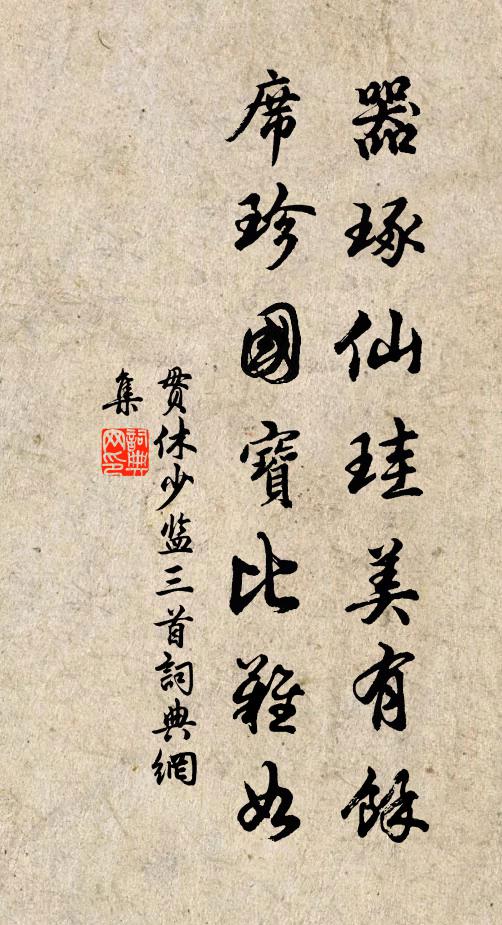 器琢仙珪美有餘
席珍國寶比難如
貫休少监三首詞典網
集
詞典网印